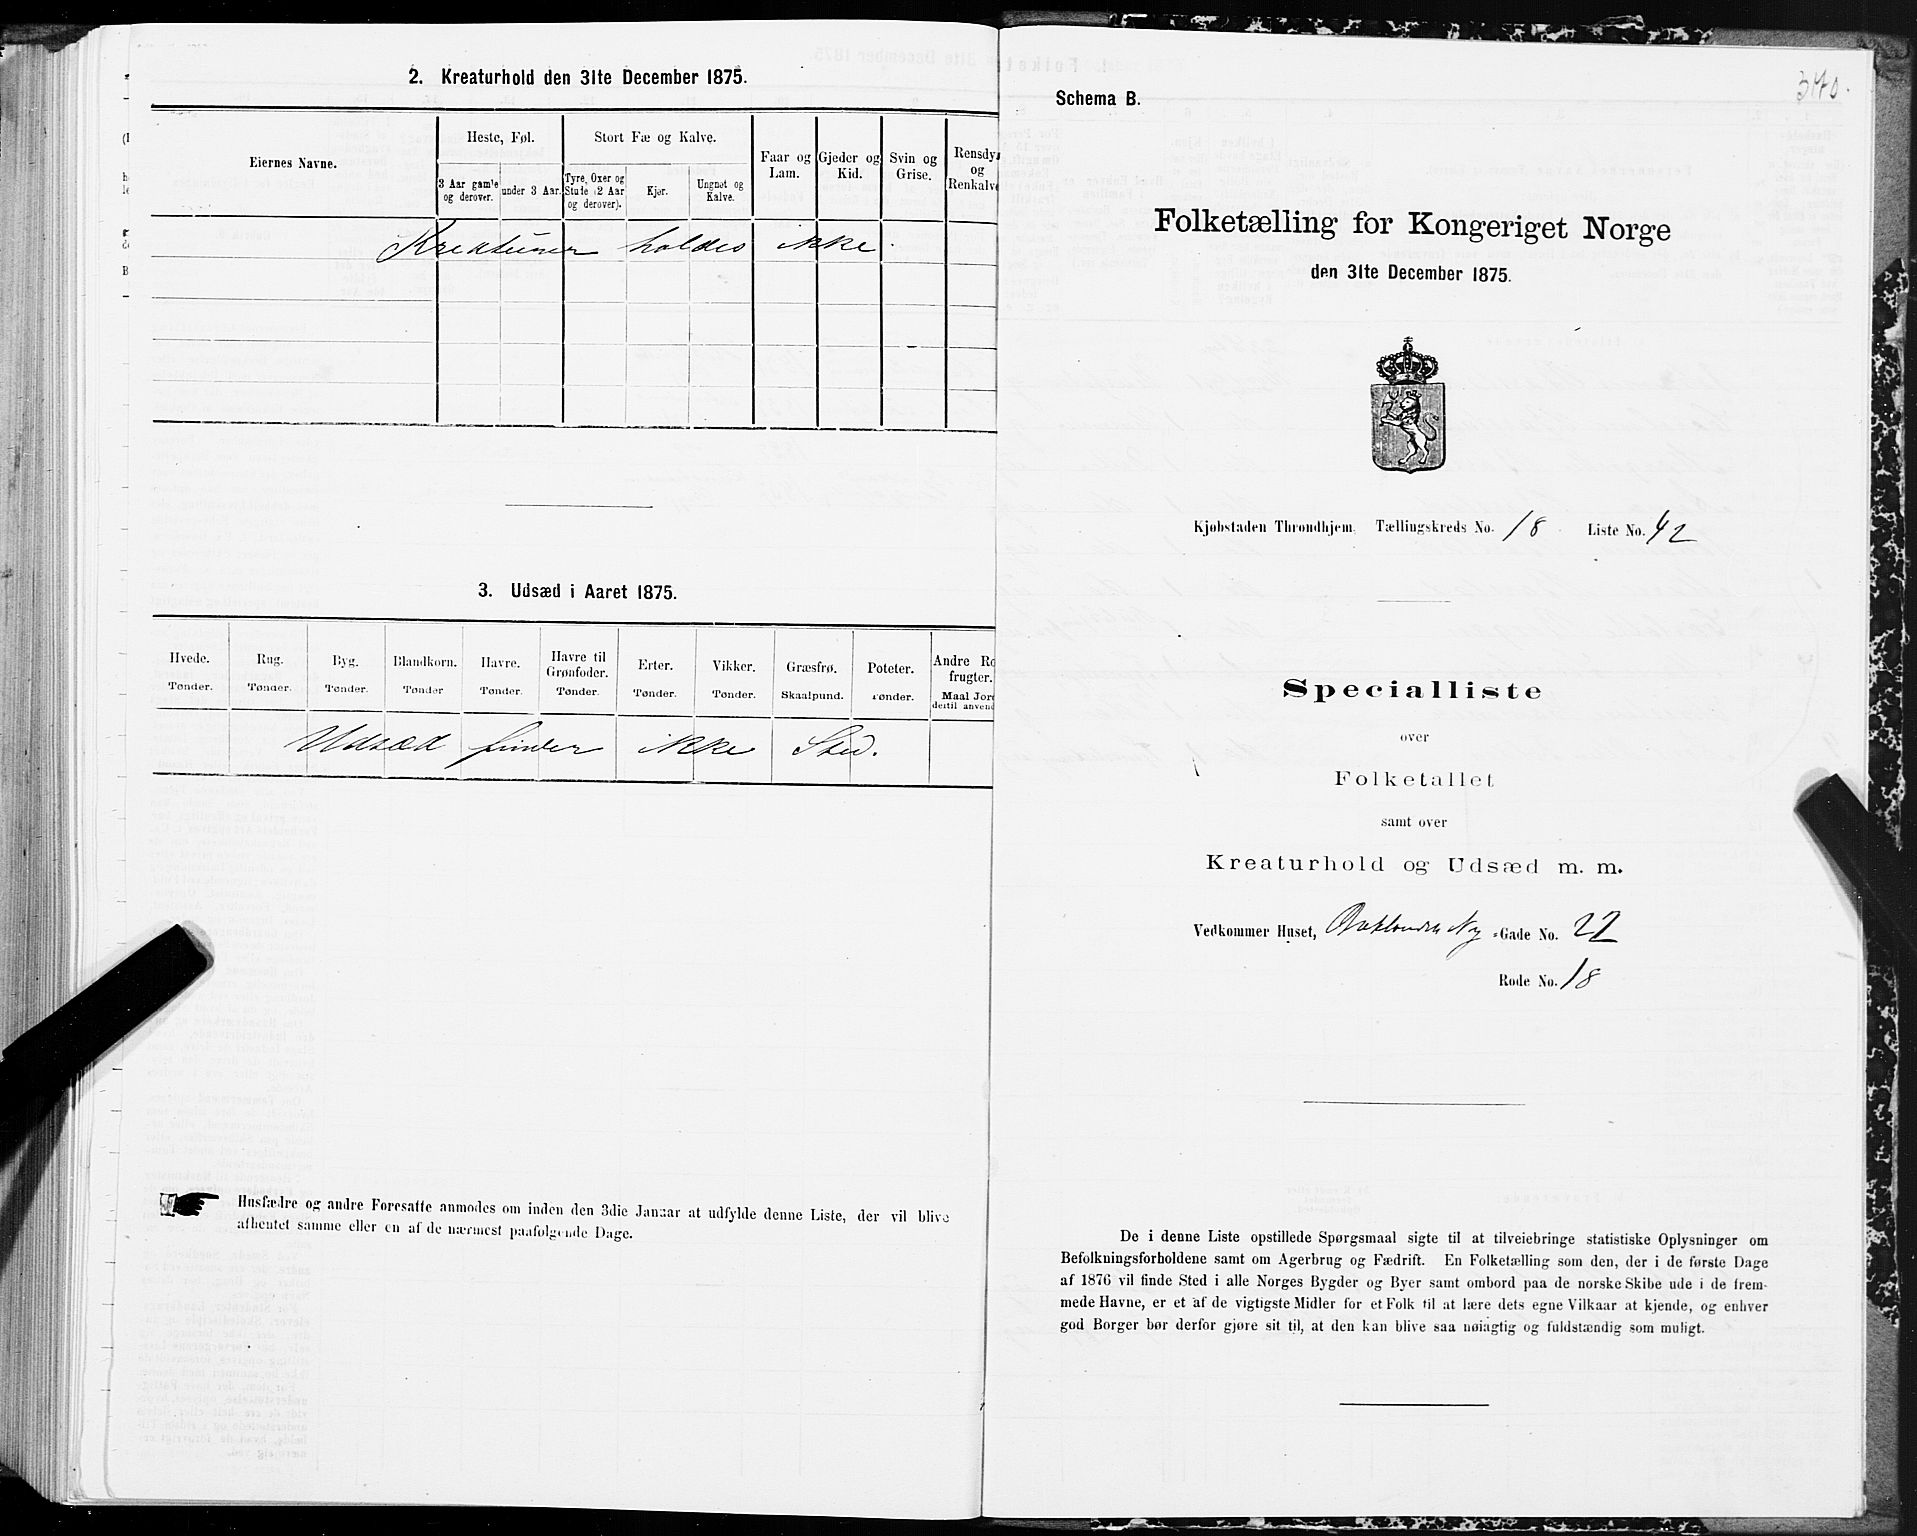 2. Kreaturhold den 31te December 1875.
Eiernes Navne.
Heste, Føl.
Stort Fæ og Kalve.
Faar og Lam.
Gjeder og Kid.
Svin og Grise.
Rensdy
og
Renkalve
3 Aar gamle og derover.
under 3 Aar.
Tyre, Oxer og Stude (2 Aar og derover).
Kjør.
Ungnøt og Kalve.
Kreaturer holdes ikke.
3. Udsæd i Aaret 1875.
Hvede. Rug. Byg. Blandkorn. Havre. Havre til Grønfoder. Erter. Vikker. Græsfrø. Poteter. Andre Ro frugter.
Tønder. Tønder. Tønder. Tønder Tønder. Tønder. Tønder. Tønder. Skaalpund. Tønder. Maal Jor dertil anvend
Udsæd finder ikke Sted.
Husfædre og andre Foresatte anmodes om inden den 3die Januar at udfylde denne Liste, der vil blive
afhentet samme eller en af de nærmest paafølgende Dage.
340.
Schema B.
Folketælling for Kongeriget Norge
den 31te December 1875.
Kjøbstaden Throndhjem. Tællingskreds No. 18 Liste No. 42
Specialliste
over
Folketallet
samt over
Kreaturhold og Udsæd m. m.
Vedkommer Huset, Baklandets Ny =Gade No. 22
Rode No. 18
De i denne Liste opstillede Spørgsmaal sigte til at tilveiebringe statistiske Oplysninger om
Befolkningsforholdene samt om Agerbrug og Fædrift. En Folketælling som den, der i de første Dage
af 1876 vil finde Sted i alle Norges Bygder og Byer samt ombord paa de norske Skibe ude i de frem-
mede Havne, er et af de vigtigste Midler for et Folk til at lære dets egne Vilkaar at kjende, og enhver
god Borger bør derfor gjøre sit til, at den kan blive saa nøiagtig og fuldstændig som muligt.